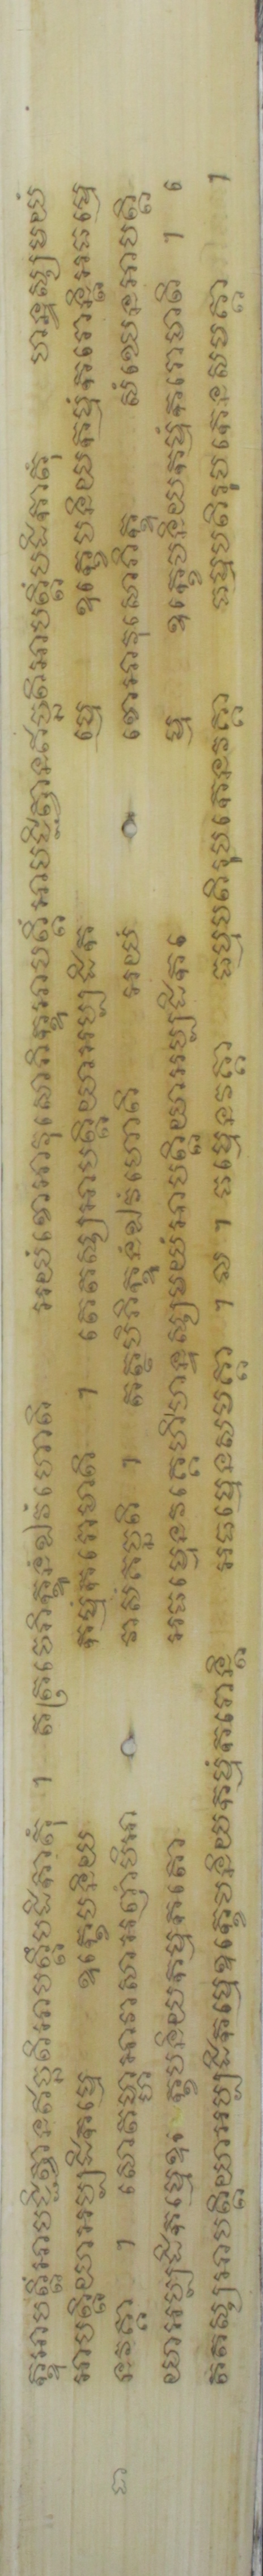 ក្ខុអាបត្តិំអាបជ្ជិត្វានឥច្ឆតិអាបត្តិំបដិកាតុំ ។ តត្រចេភិក្ខុនំឯវំហោតិ អយំខោអាវុសោភិក្ខុអាបត្តិំអាបជ្ជិត្វានឥច្ឆតិអាបត្តិំបដិកាតុំ ហន្ទស្សមយំ
អាបត្តិយាអប្បដិកម្មេ ឧក្ខេបនិយ កម្មំករោមាតិ ។ តេតស្សអាបត្តិយាអប្បដិក ម្មេ ឧក្ខេបនិយកម្មំករោន្តិអធម្មេ
ធា នវគ្គា ។ សោតម្ហាអាវាសាអញ្ញំបិអា វាសំគច្ឆតិ ។ តត្ថបិភិក្ខុនំឯវំហោតិ អយំ ខោអាវុសោភិក្ខុ សំឃេនអាបត្តិ
យាអប្បដិកម្មេឧក្ខេបនិយកម្មកតោ អធម្មេនវគ្គេហិហន្ទស្សមយំអាបត្តិយាអប្បដិកម្មេ ឧក្ខេបនិយកម្មំករោមាតិ ។ តេ
តស្សអាបត្តិយាអប្បដិកម្មេឧក្ខេបនិយកម្មំករោន្តិ អធម្មេនសមគ្គា ។ ល ។ ធម្មេនវគ្គា ធម្មបតិរូបកេនវគ្គា ធម្មបតិរូបកេនសមគ្គា ។